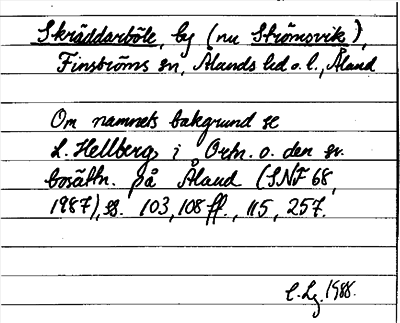 Skräddarböle, by (nu Strömsvik),
Finströms sn, Ålands hd o. l., Åland
Om namnets bakgrund se
L. Hellberg, i Ortn. o. den sv.
bosättn. på Åland (SNF 68,
1987), ss. 103, 108 ff., 115, 257.
1988.